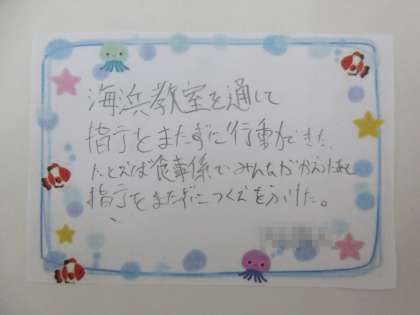 海浜教室を通して
指示をまたずに行動ができた、
たとえば食事係でみんながかえったあと
指示をまたずにつくえをふけた。